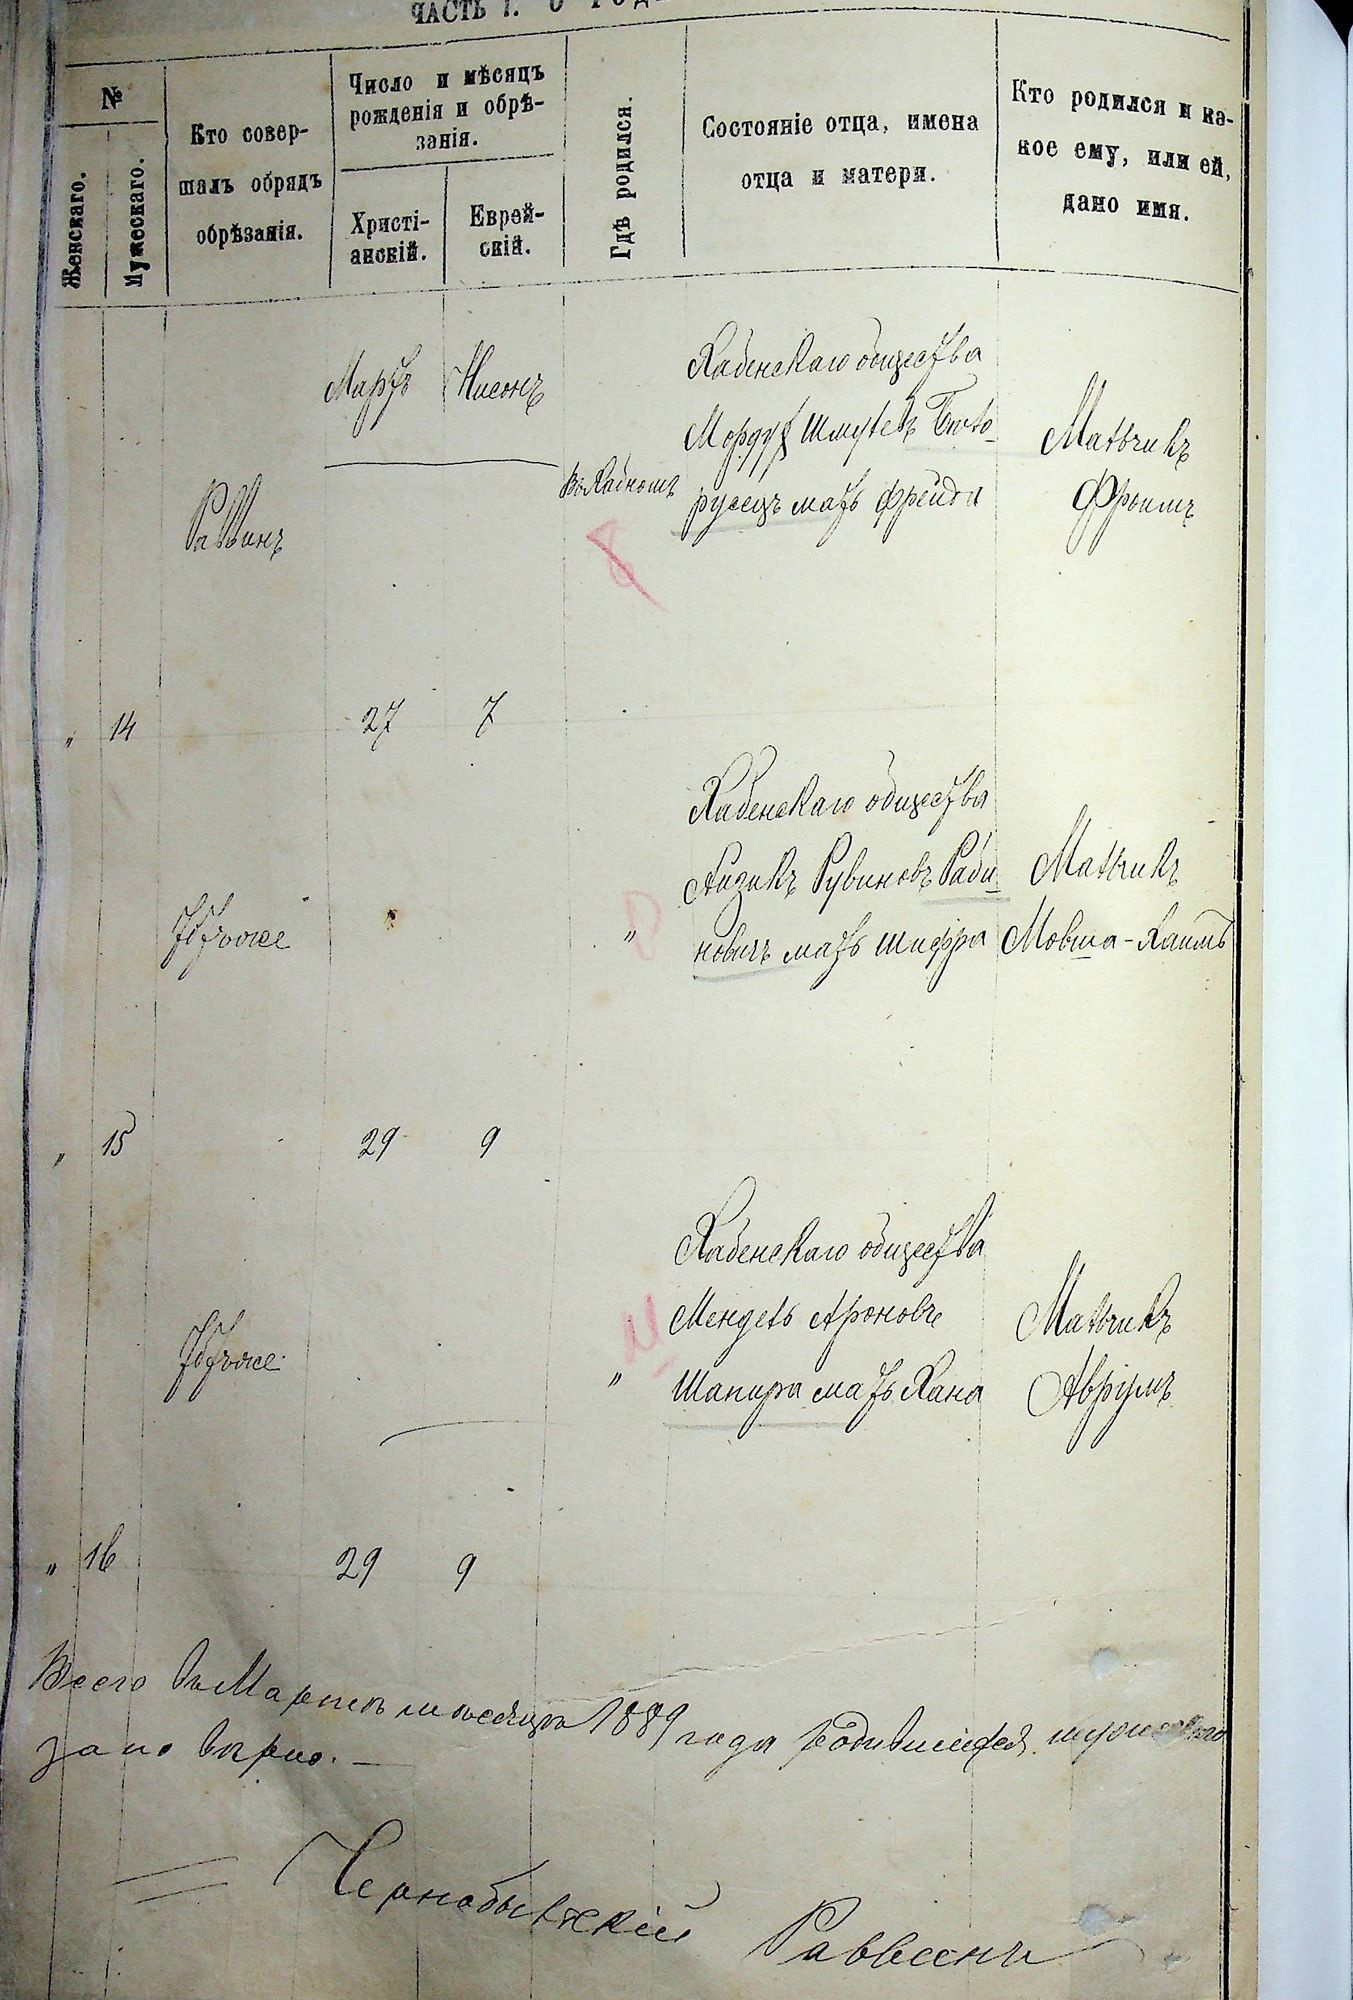 ЧАСТЬ I. О РОД
№
Женскаго.
Мужескаго.
Кто совер-
шалъ обрядъ
обрѣзанія.
Число и мѣсяцъ
рожденія и обрѣ-
занія.
Христі-
анскій.
Еврей-
скій.
Гдѣ родился.
Состояніе отца, имена
отца и матери.
Кто родился и ка-
кое ему, или ей,
дано имя.
Мартъ Нисонъ
Раввинъ
въ Хабномъ
Хабенскаго общества
Мордух Шмулевъ Бело-
русецъ мать Фрейда
Мальчикъ
Фроимъ
" 14 27 7
Тотъже
"
Хабенскаго общества
Айзикъ Рувиновъ Раби-
новичъ мать Шифра
Мальчикъ
Мовша-Хаимъ
" 15 29 9
Тотъже
"
Хабенскаго общества
Мендель Ароновъ
Шапира мать Хана
Мальчикъ
Аврумъ
" 16 29 9
Всего въ Мартѣ мѣсяцѣ 1889 года родившихся мужескаго
вѣрно. —
Чернобыльскій Раввинъ